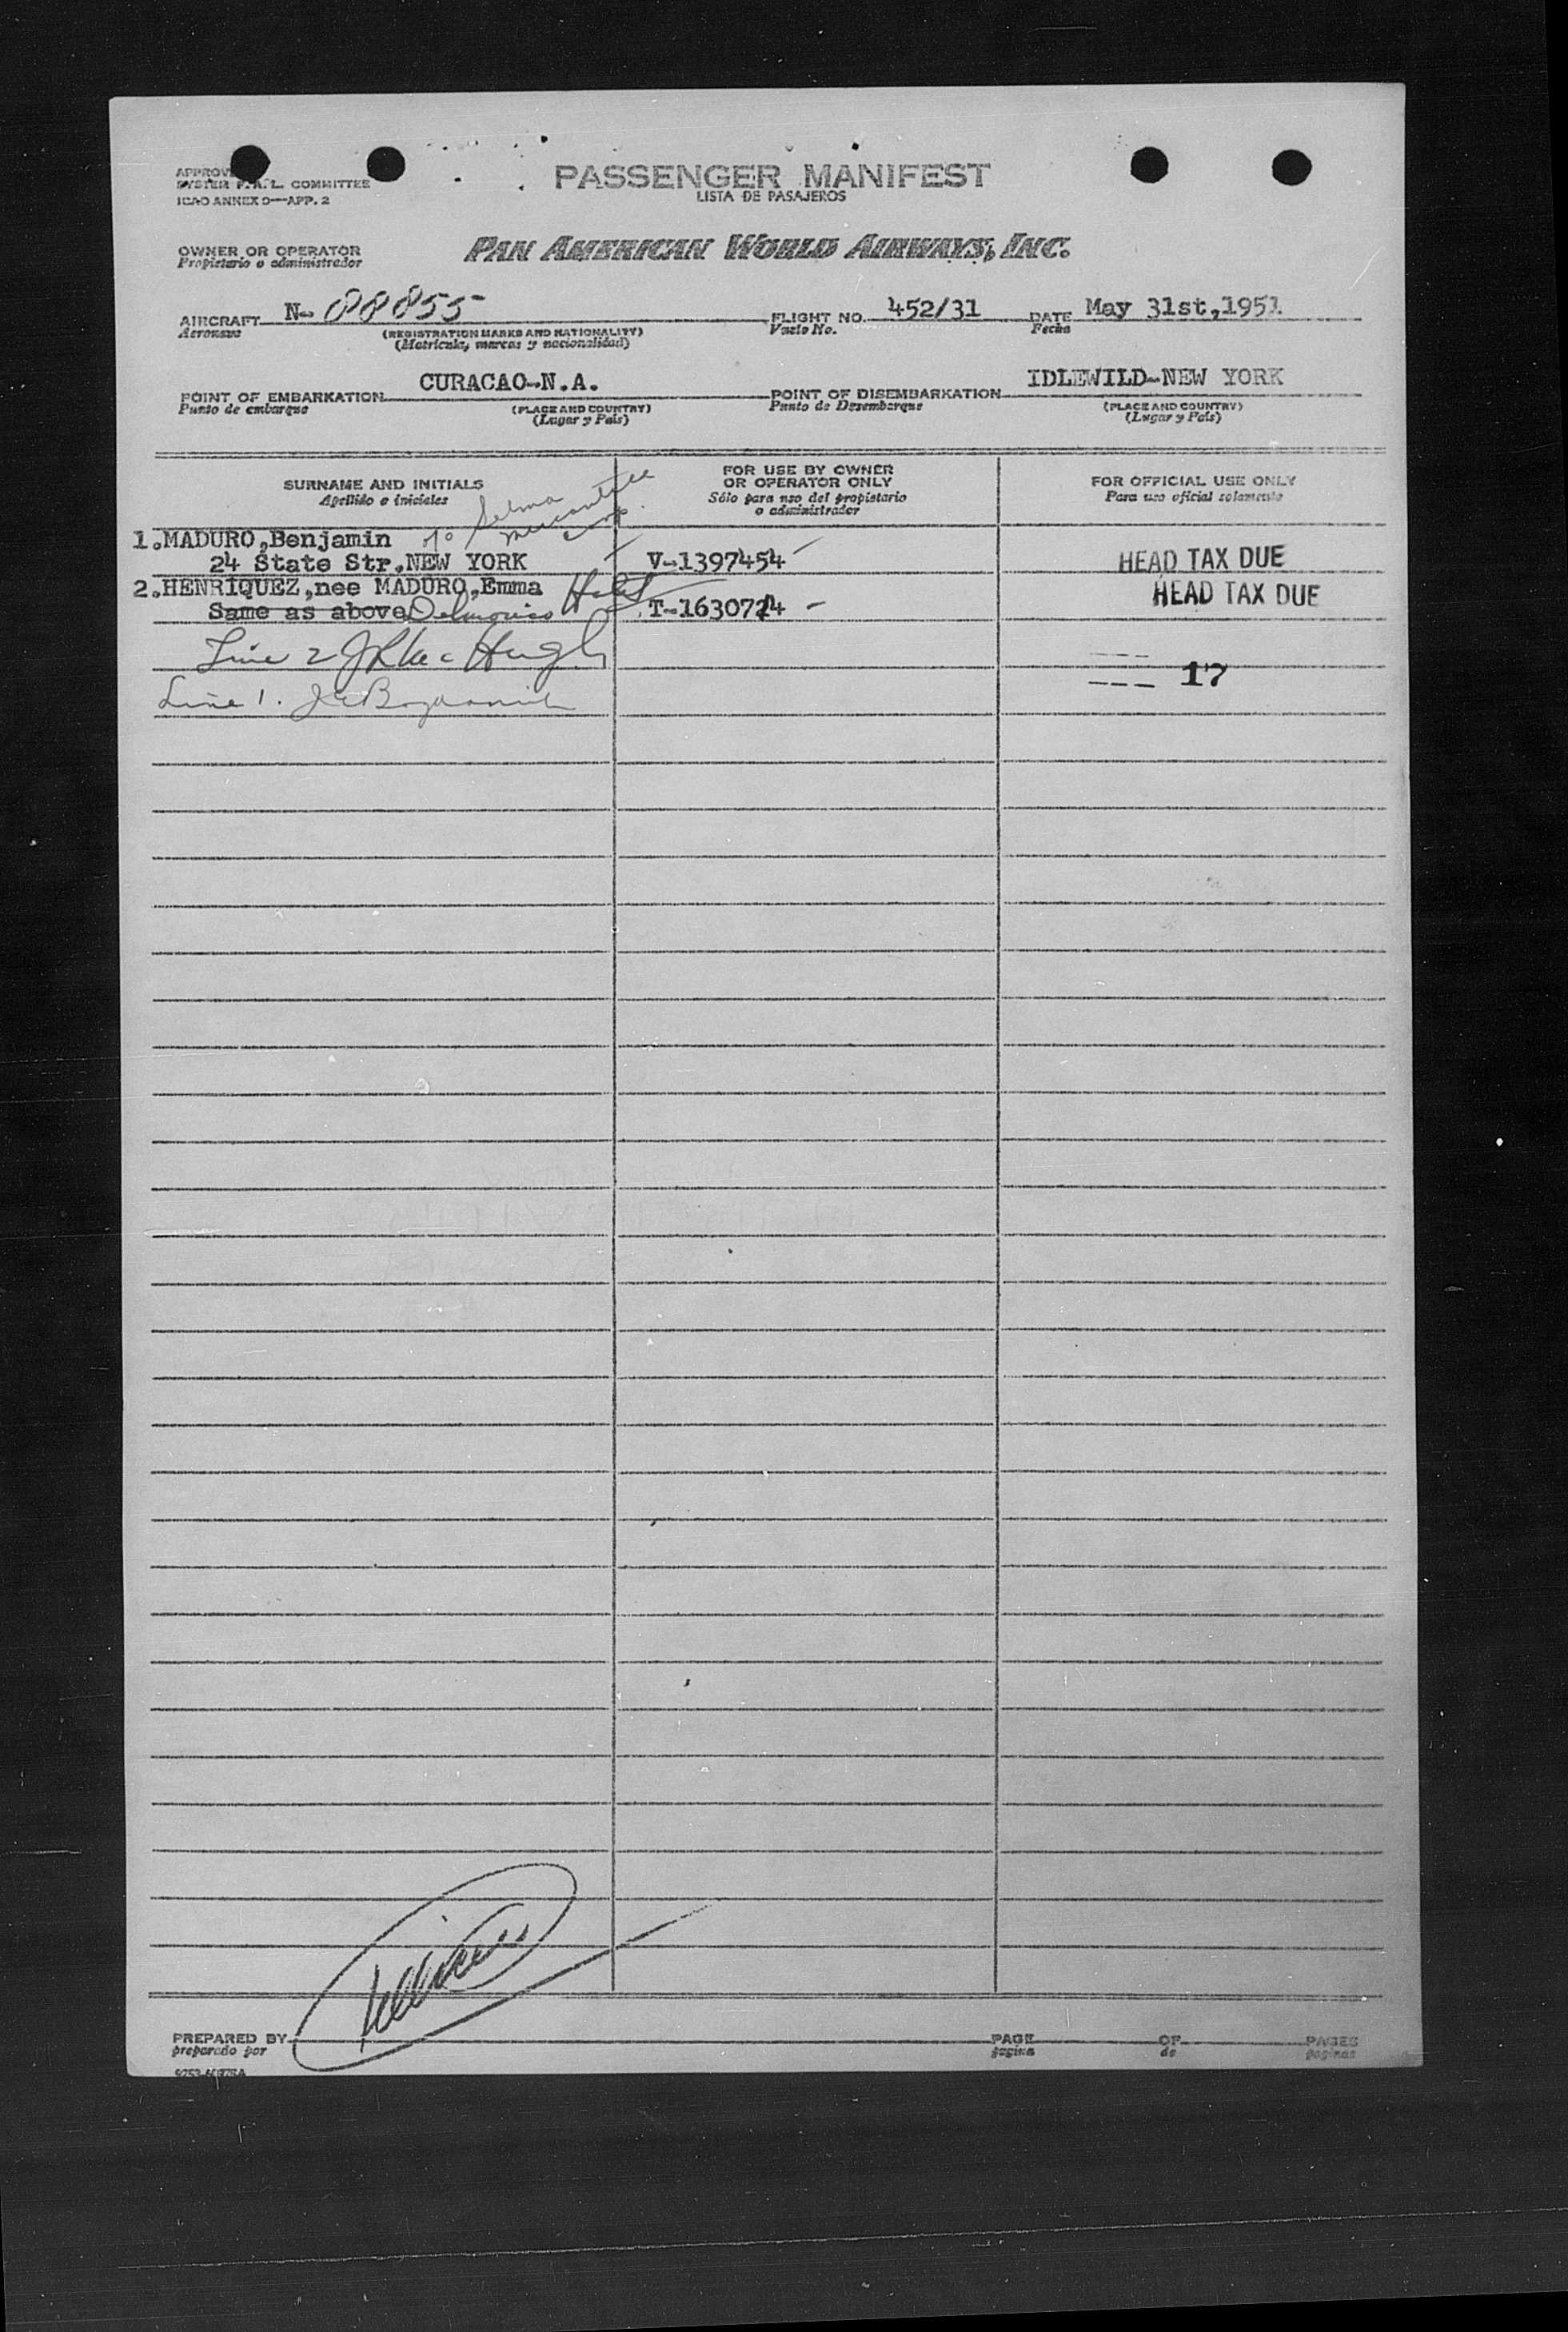 PASSENGER MANIFEST
LISTA DE PASAJEROS
APPROVE
SYSTEM F.A.L. COMMITTEE
ICAO ANNEX 9—APP. 2
OWNER OR OPERATOR
Propietario o administrador
PAN AMERICAN WORLD AIRWAYS, INC.
AIRCRAFT N- 88855 FLIGHT NO. 452/31 DATE May 31st,1951
Aeronave (REGISTRATION MARKS AND NATIONALITY) Vuelo No. Fecha
(Matricula, marcas y nacionalidad)
POINT OF EMBARKATION CURACAO-N.A. POINT OF DISEMBARKATION IDLEWILD-NEW YORK
Punto de embarque (PLACE AND COUNTRY) Punto de Desembarque (PLACE AND COUNTRY)
(Lugar y País) (Lugar y País)
SURNAME AND INITIALS FOR USE BY OWNER OR OPERATOR ONLY FOR OFFICIAL USE ONLY
Apellido e iniciales Sólo para uso del propietario o administrador Para uso oficial solamente
1.MADURO,Benjamin c/o Selma Mercantile Corp.
24 State Str.NEW YORK V-1397454 HEAD TAX DUE
2.HENRIQUEZ,nee MADURO,Emma Hotel HEAD TAX DUE
Same as above Delmonico T-1630724
Line 2
17
Line 1.
PREPARED BY PAGE OF PAGES
preparado por pagina de paginas